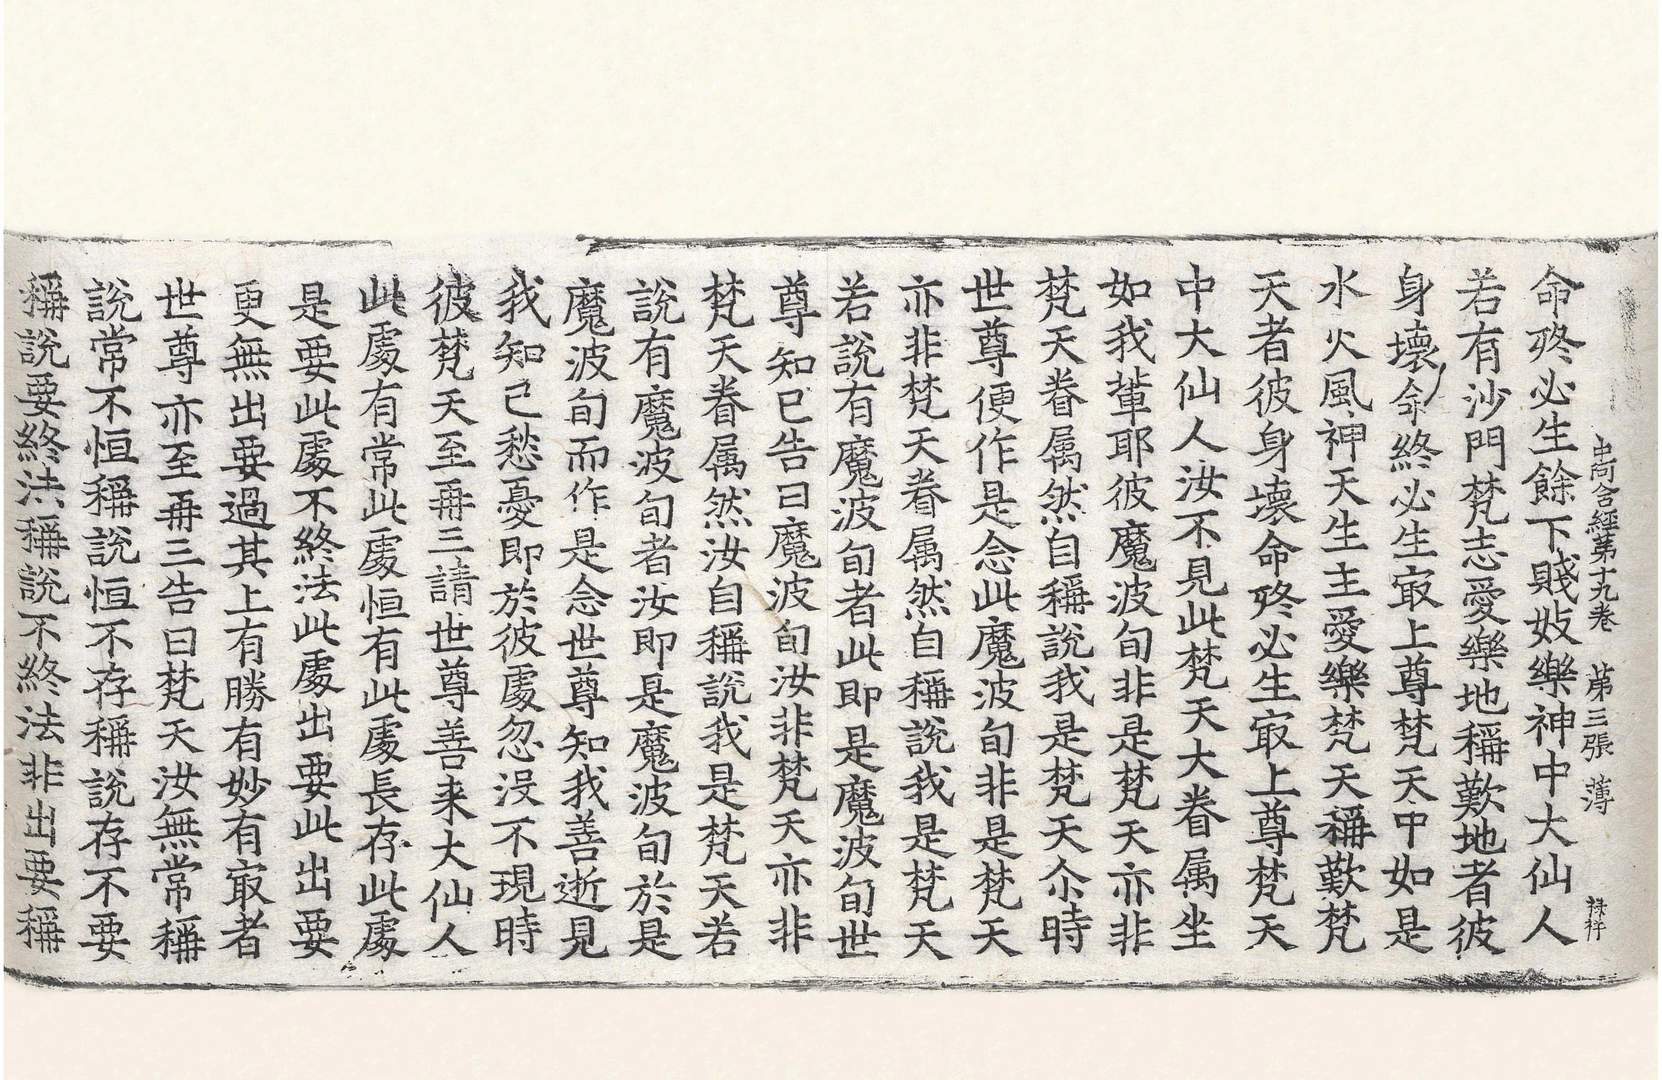 中阿含經第十九卷 第三張 薄 祿祥
命終必生餘下賤妓樂神中大仙人
若有沙門梵志愛樂地稱歎地者彼
身壞命終必生㝡上尊梵天中如是
水火風神天生主愛樂梵天稱歎梵
天者彼身壞命終必生㝡上尊梵天
中大仙人汝不見此梵天大眷属坐
如我輩耶彼魔波旬非是梵天亦非
梵天眷属然自稱說我是梵天尒時
世尊便作是念此魔波旬非是梵天
亦非梵天眷属然自稱說我是梵天
若說有魔波旬者此即是魔波旬世
尊知已告曰魔波旬汝非梵天亦非
梵天眷属然汝自稱說我是梵天若
說有魔波旬者汝即是魔波旬於是
魔波旬而作是念世尊知我善逝見
我知已愁憂即於彼處忽沒不現時
彼梵天至再三請世尊善来大仙人
此處有常此處恒有此處長存此處
是要此處不終法此處出要此出要
更無出要過其上有勝有妙有㝡者
世尊亦至再三告曰梵天汝無常稱
說常不恒稱說恒不存稱說存不要
稱說要終法稱說不終法非出要稱